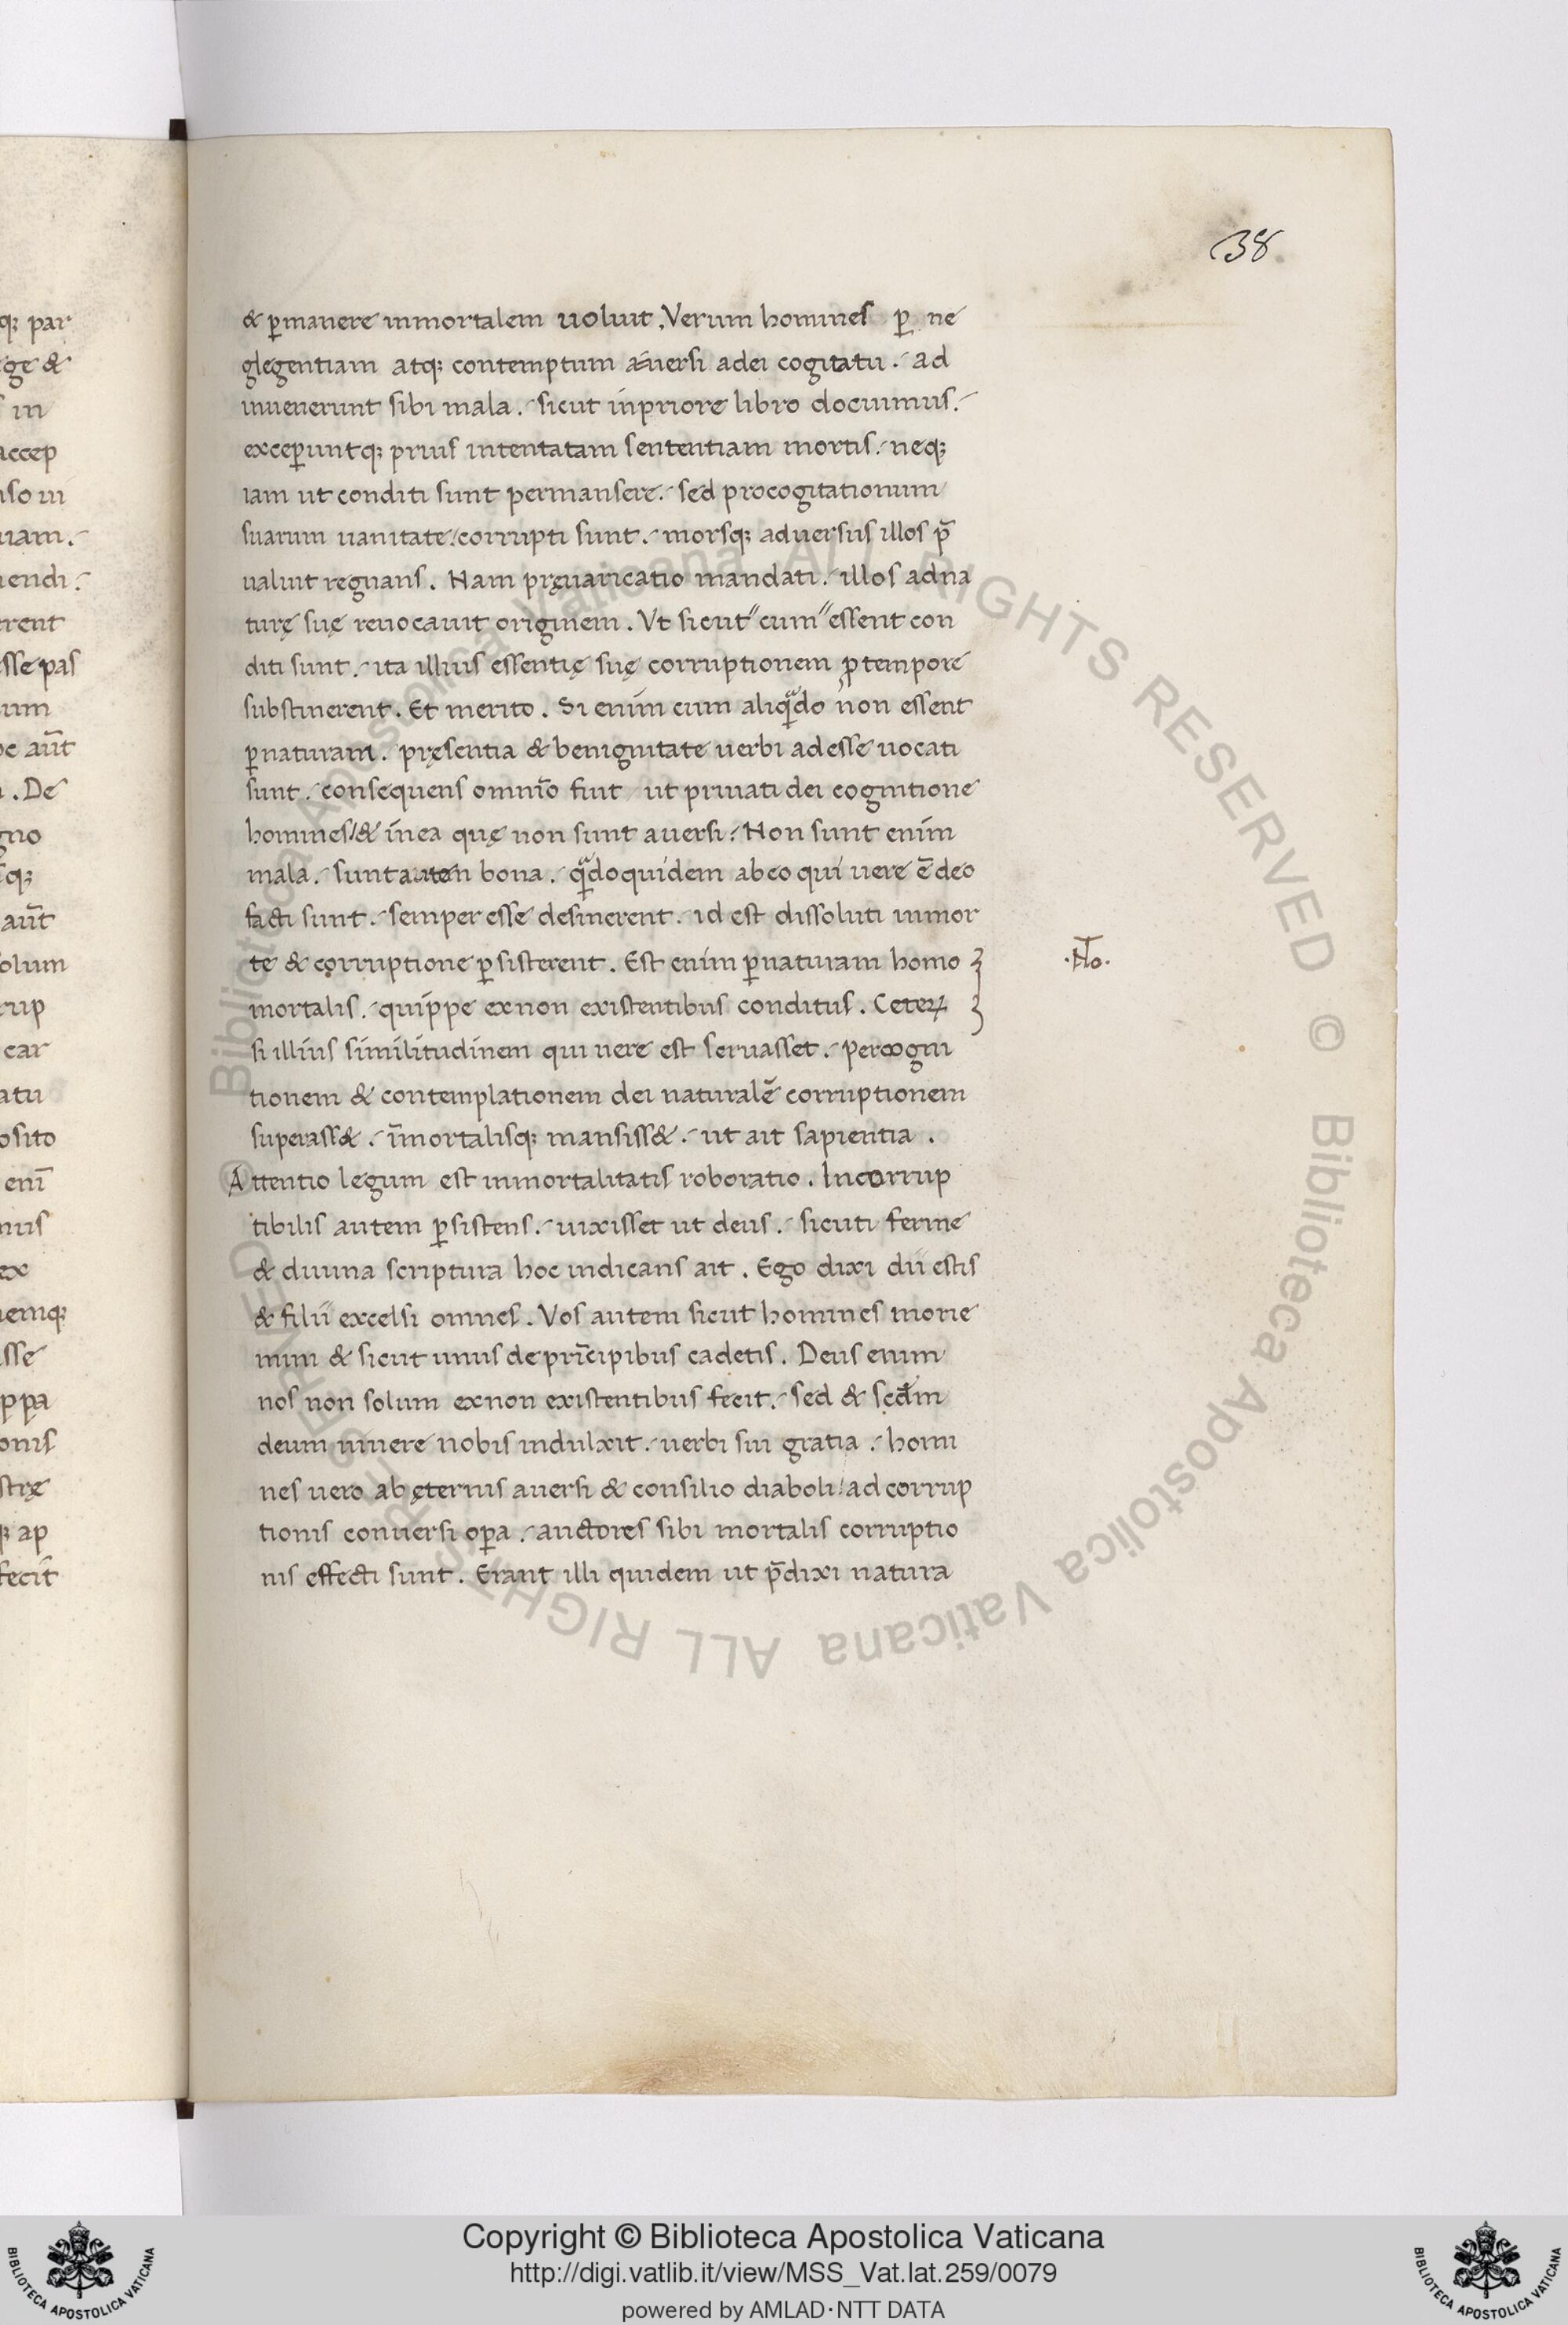 38.
& ꝑmanere inmortalem uoluit. Verum homines ꝑ ne
glegentiam atq; contemptum auersi adei cogitatu. ad
inuenerunt sibi mala. sicut inpriore libro docuimus.
exceperuntq; prius intentatam sententiam mortis. neq;
iam ut conditi sunt permansere. sed procogitationum
suarum uanitate corrupti sunt. morsq; aduersus illos p̄
ualuit regnans. Nam pręuaricatio mandati. illos adna
turę suę reuocauit originem. Vt sicut cum essent con
diti sunt. ita illius essentię suę corruptionem ꝓ tempore
substinerent. Et merito. Si enim cum aliqͣdo non essent
ꝑnaturam. pręsentia & benignitate uerbi adesse uocati
sunt. consequens omnino fuit ut priuati dei cognitione
homines & inea quę non sunt auersi. Non sunt enim
mala. sunt autem bona. qͣdoquidem abeo qui uere ē deo
facti sunt. semper esse desinerent. id est dissoluti inmor
te & corruptione ꝑsisterent. Est enim ꝑnaturam homo
·No͞·
mortalis. quippe exnon existentibus conditus. Ceteꝝ
si illius similitudinem qui uere est seruasset. percogni
tionem & contemplationem dei naturalē corruptionem
superass&. īmortalisq; mansiss&. ut ait sapientia.
Attentio legum est inmortalitatis roboratio. Incorrup
tibilis autem ꝑsistens. uixisset ut deus. sicuti ferme
& diuina scriptura hoc indicans ait. Ego dixi dii estis
& filii excelsi omnes. Vos autem sicut homines morie
mini & sicut unus de principibus cadetis. Deus enim
nos non solum exnon existentibus fecit. sed & scd̄m
deum uiuere nobis indulxit. uerbi sui gratia. homi
nes uero ab ęternis auersi & consilio diaboli ad corrup
tionis conuersi oꝑa. auctores sibi mortalis corruptio
nis effecti sunt. Erant illi quidem ut p̄dixi natura
q; par
ge &
in
accep
uiam.
uendi.
rent
sse pas
um
oc aūt
. De
gno
sq;
aūt
olum
rup
car
atu
osito
enī
nus
ex
emq;
sse
onis
strę
ap
fecit
© Biblioteca Apostolica Vaticana ALL RIGHTS RESERVED © Biblioteca Apostolica Vaticana ALL RIGHTS RESERVED
Copyright © Biblioteca Apostolica Vaticana
http://digi.vatlib.it/view/MSS_Vat.lat.259/0079
powered by AMLAD·NTT DATA
BIBLIOTECA APOSTOLICA VATICANA
BIBLIOTECA APOSTOLICA VATICANA